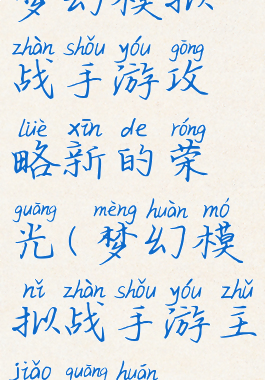 梦幻模拟
zhàn shǒu yóu gōng
战手游攻
lüè xīn de róng
略新的荣
guāng mèng huàn mó
光(梦幻模
nǐ zhàn shǒu yóu zhǔ
拟战手游主
jiǎo guāng huán